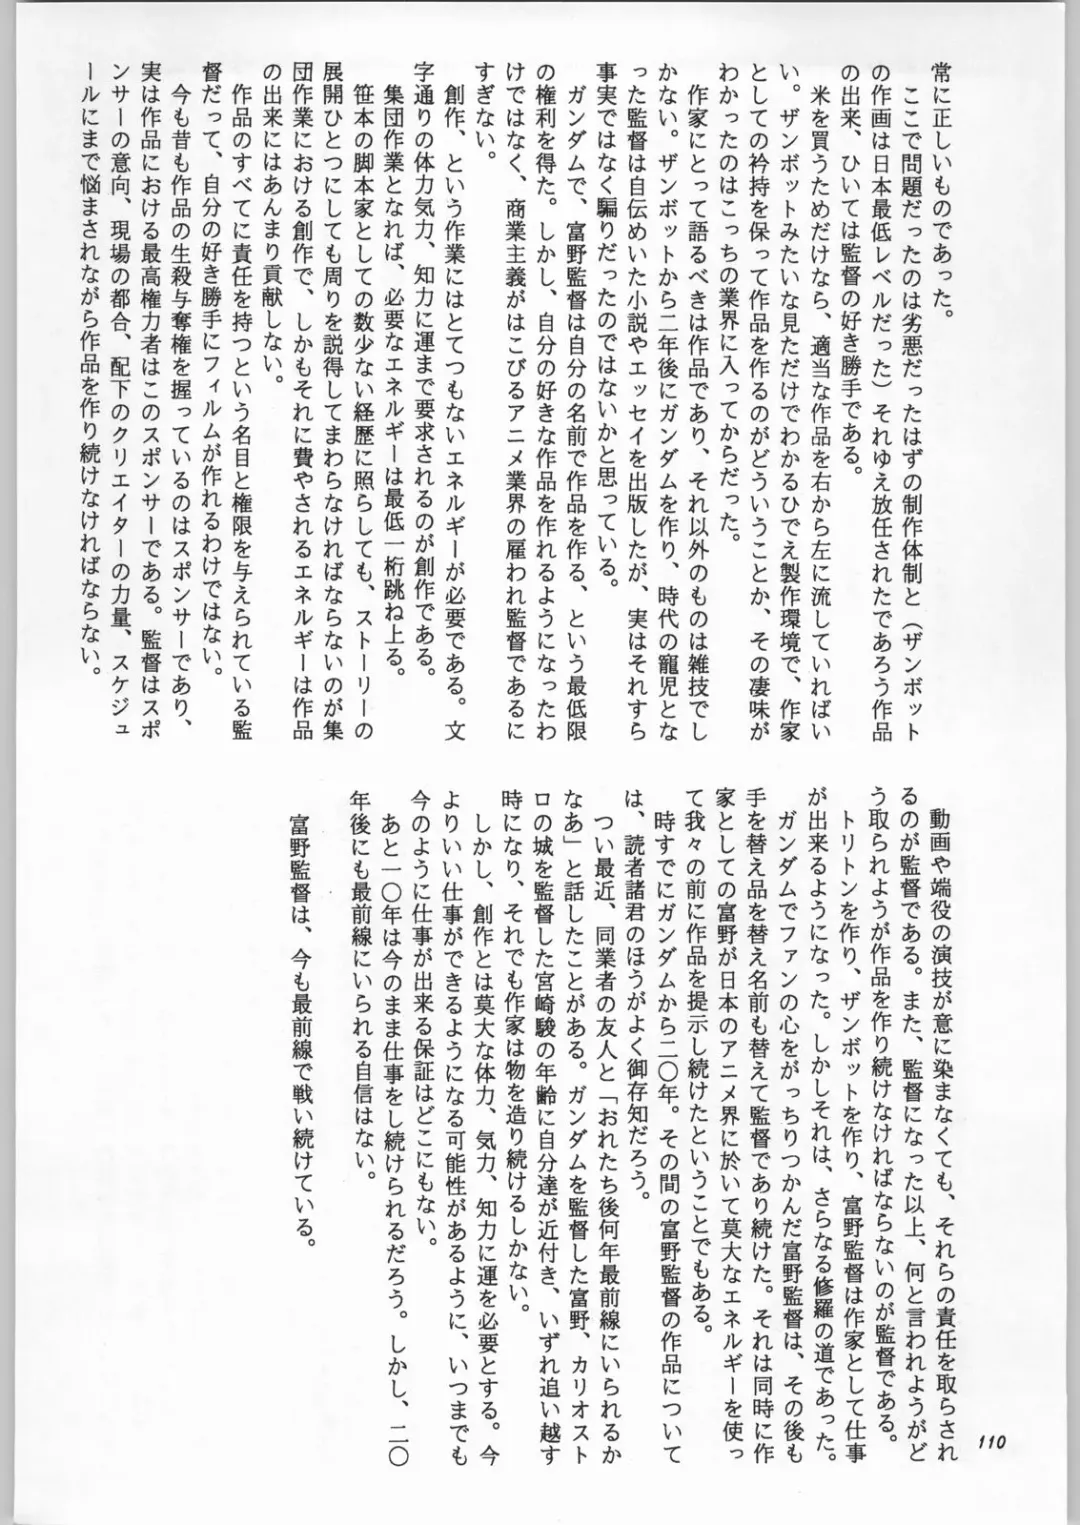 常に正しいものであった。
　ここで問題だったのは劣悪だったはずの制作体制と（ザンボット
の作画は日本最低レベルだった）それゆえ放任されたであろう作品
の出来、ひいては監督の好き勝手である。
　米を買うためだけなら、適当な作品を右から左に流していればい
い。ザンボットみたいな見ただけでわかるひでえ製作環境で、作家
としての衿持を保って作品を作るのがどういうことか、その凄味が
わかったのはこっちの業界に入ってからだった。
　作家にとって語るべきは作品であり、それ以外のものは雑技でし
かない。ザンボットから二年後にガンダムを作り、時代の寵児とな
った監督は自伝めいた小説やエッセイを出版したが、実はそれすら
事実ではなく騙りだったのではないかと思っている。
　ガンダムで、富野監督は自分の名前で作品を作る、という最低限
の権利を得た。しかし、自分の好きな作品を作れるようになったわ
けではなく、商業主義がはこびるアニメ業界の雇われ監督であるに
すぎない。
　創作、という作業にはとてつもないエネルギーが必要である。文
字通りの体力気力、知力に運まで要求されるのが創作である。
　集団作業となれば、必要なエネルギーは最低一桁跳ね上る。
　笹本の脚本家としての数少ない経歴に照らしても、ストーリーの
展開ひとつにしても周りを説得してまわらなければならないのが集
団作業における創作で、しかもそれに費やされるエネルギーは作品
の出来にはあんまり貢献しない。
　作品のすべてに責任を持つという名目と権限を与えられている監
督だって、自分の好き勝手にフィルムが作れるわけではない。
　今も昔も作品の生殺与奪権を握っているのはスポンサーであり、
実は作品における最高権力者はこのスポンサーである。監督はスポ
ンサーの意向、現場の都合、配下のクリエイターの力量、スケジュ
ールにまで悩まされながら作品を作り続けなければならない。
　動画や端役の演技が意に染まなくても、それらの責任を取らされ
るのが監督である。また、監督になった以上、何と言われようがど
う取られようが作品を作り続けなければならないのが監督である。
　トリトンを作り、ザンボットを作り、富野監督は作家として仕事
が出来るようになった。しかしそれは、さらなる修羅の道であった。
　ガンダムでファンの心をがっちりつかんだ富野監督は、その後も
手を替え品を替え名前も替えて監督であり続けた。それは同時に作
家としての富野が日本のアニメ界に於いて莫大なエネルギーを使っ
て我々の前に作品を提示し続けたということでもある。
　時すでにガンダムから二〇年。その間の富野監督の作品について
は、読者諸君のほうがよく御存知だろう。
　つい最近、同業者の友人と「おれたち後何年最前線にいられるか
なあ」と話したことがある。ガンダムを監督した富野、カリオスト
ロの城を監督した宮崎駿の年齢に自分達が近付き、いずれ追い越す
時になり、それでも作家は物を造り続けるしかない。
　しかし、創作とは莫大な体力、気力、知力に運を必要とする。今
よりいい仕事ができるようになる可能性があるように、いつまでも
今のように仕事が出来る保証はどこにもない。
　あと一〇年は今のまま仕事をし続けられるだろう。しかし、二〇
年後にも最前線にいられる自信はない。
　富野監督は、今も最前線で戦い続けている。
110